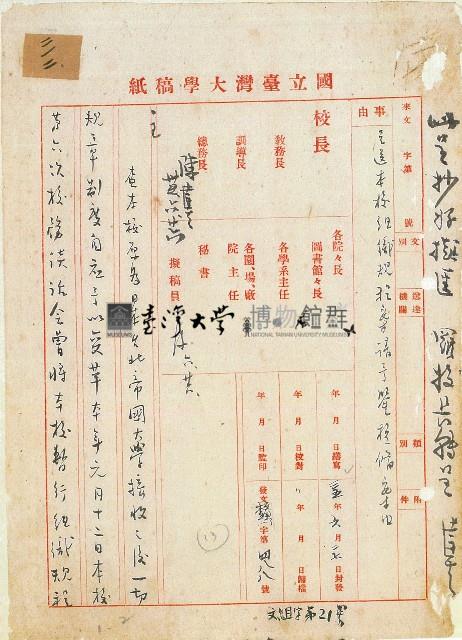 三二
國立臺灣大學稿紙
此呈抄好後送
羅校長轉呈
來文 字第 號
文別
送達機關
類別
附件
事由
呈送本校組織規程祈請予鑒核備案由
校長
教務長
訓導長
總務長
陳建
各院々長
圖書館々長
各學系主任
各園、場、廠
院主任
秘書
擬稿員
年 月 日繕寫
年 月 日校對
年 月 日監印
年六月 日封發
年 月 日歸檔
發文 字第 四八 號
臺灣大學
博物館群
MUSEUMS
NATIONAL TAIWAN UNIVERSITY MUSEUMS
查本校原為日本台北帝國大學接收之後一切
規章制度自應予以變革本年元月十二日本校
第六次校務談話會曾將本校暫行組織規程
(13)
文組字第21號